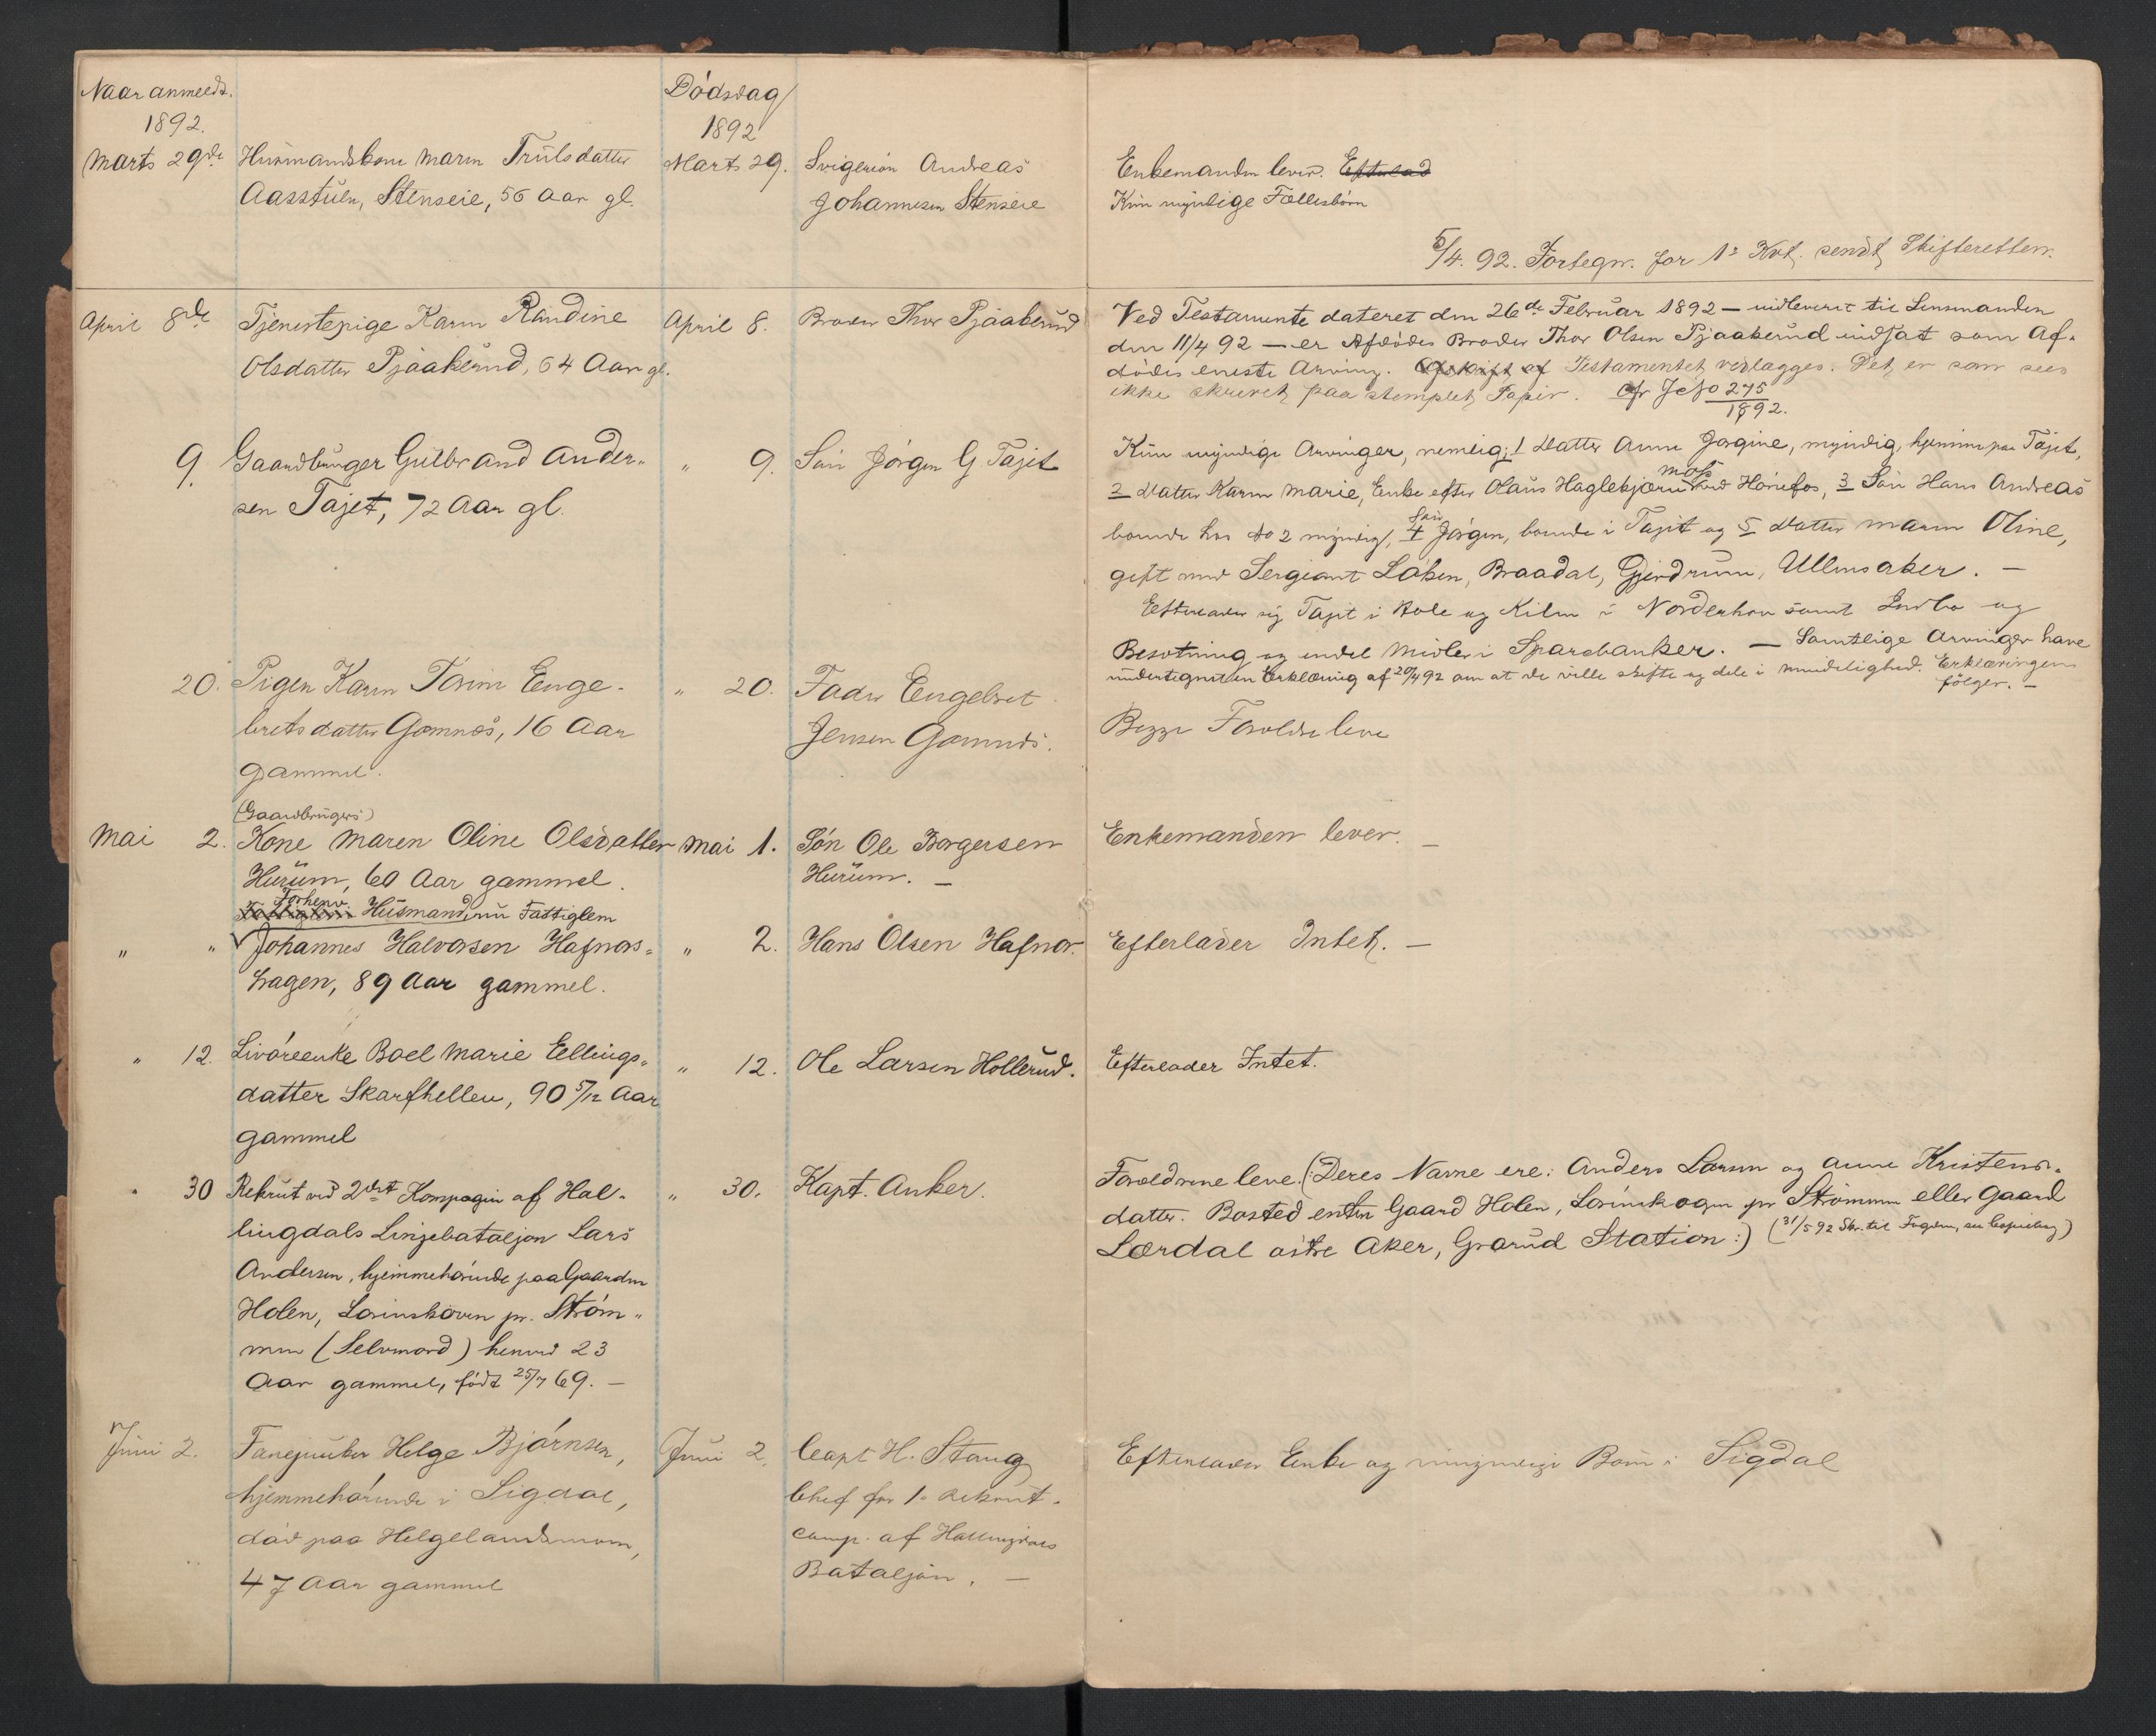 Naar anmeldt.
1892.
Dødsdag
1892
Marts 29de
Husmandskone Maren Trulsdatter
Aasstuen, Stenseie, 56 Aar gl.
Marts 29.
Svigersøn Andreas
Johannesen Stenseie
Enkemanden lever. Efterlad
Kun myndige Fællesbørn
5/4. 92. Fortegn. for 1s Kvt. sendt Skifteretten.
April 8de
Tjenestepige Karen Randine
Olsdatter Pjaakerud, 64 Aar gl.
April 8.
Broder Thor Pjaakerud
Ved Testamente dateret den 26de Februar 1892 — indleveret til Lensmanden
den 11/4 92 — er Afdødes Broder Thor Olsen Pjaakerud indsat som Af-
dødes eneste Arving. Afskrift af Testamentet vedlægges. Det er som sees
ikke skrevet paa stemplet Papir. Cfr JNo 275
1892.
9.
Gaardbruger Gulbrand Ander-
sen Tajet, 72 Aar gl.
" 9.
Søn Jørgen G Tajet
Kun myndige Arvinger, nemlig: 1 Datter Anne Jorgine, myndig, hjemme paa Tajet,
2 Datter Karen Marie, Enke efter Olaus Haglebjærmoe ved Hønefos, 3 Søn Hans Andreas
boende hos No 2 myndig, 4 Søn Jørgen, boende i Tajet og 5 Datter Maren Oline,
gift med Sergiant Løken, Braadal, Gjerdrum, Ullensaker. —
Efterlader sig Tajet i Hole og Kilen i Norderhov samt Indbo og
Besætning og endel Midler i Sparebanker. — Samtlige Arvinger have
undertegnet en Erklæring af 20/4 92 om at de ville skifte og dele i mindelighed. Erklæringen
følger. —
20.
Pigen Karen Torine Enge-
bretsdatter Gomnæs, 16 Aar
gammel.
" 20.
Fader Engebret
Jensen Gomnæs.
Begge Forældre leve
(Gaardbrugers)
Mai 2.
Kone Maren Oline Olsdatter
Hurum, 60 Aar gammel.
Mai 1.
Søn Ole Borgersen
Hurum. —
Enkemanden lever. —
Forhenv. Husmand, nu Fattiglem
" "
Johannes Halvorsen Hafnors-
hagen, 89 Aar gammel.
" 2.
Hans Olsen Hafnor.
Efterlader Intet. —
" 12.
Livøreenke Boel Marie Ellings-
datter Skarfhellen, 90 5/12 Aar
gammel
" 12.
Ole Larsen Hollerud.
Efterlader Intet.
" 30
Rekrut ved 2det Kompagni af Hal-
lingdals Linjebataljon Lars
Andersen, hjemmehørende paa Gaarden
Holen, Lørenskoven pr. Strøm-
men (Selvmord) henved 23
Aar gammel, født 25/7 69. —
" 30.
Kapt. Anker.
Forældrene leve. (: Deres Navne ere: Anders Larsen og Anne Kristens-
datter. Bosted enten Gaard Holen, Lørenskogen pr Strømmen eller Gaard
Lærdal østre Aker, Grorud Station :) (31/5 92 Skr. til Fogden, se Copiebog)
Juni 2.
Fanejunker Helge Bjørnsen,
hjemmehørende i Sigdal,
død paa Helgelandsmoen,
47 Aar gammel
Juni 2.
Capt H. Stang
Chef for 1. Rekrut-
comp. af Hallingdals
Bataljon. —
Efterlader Enke og umyndige Børn i Sigdal